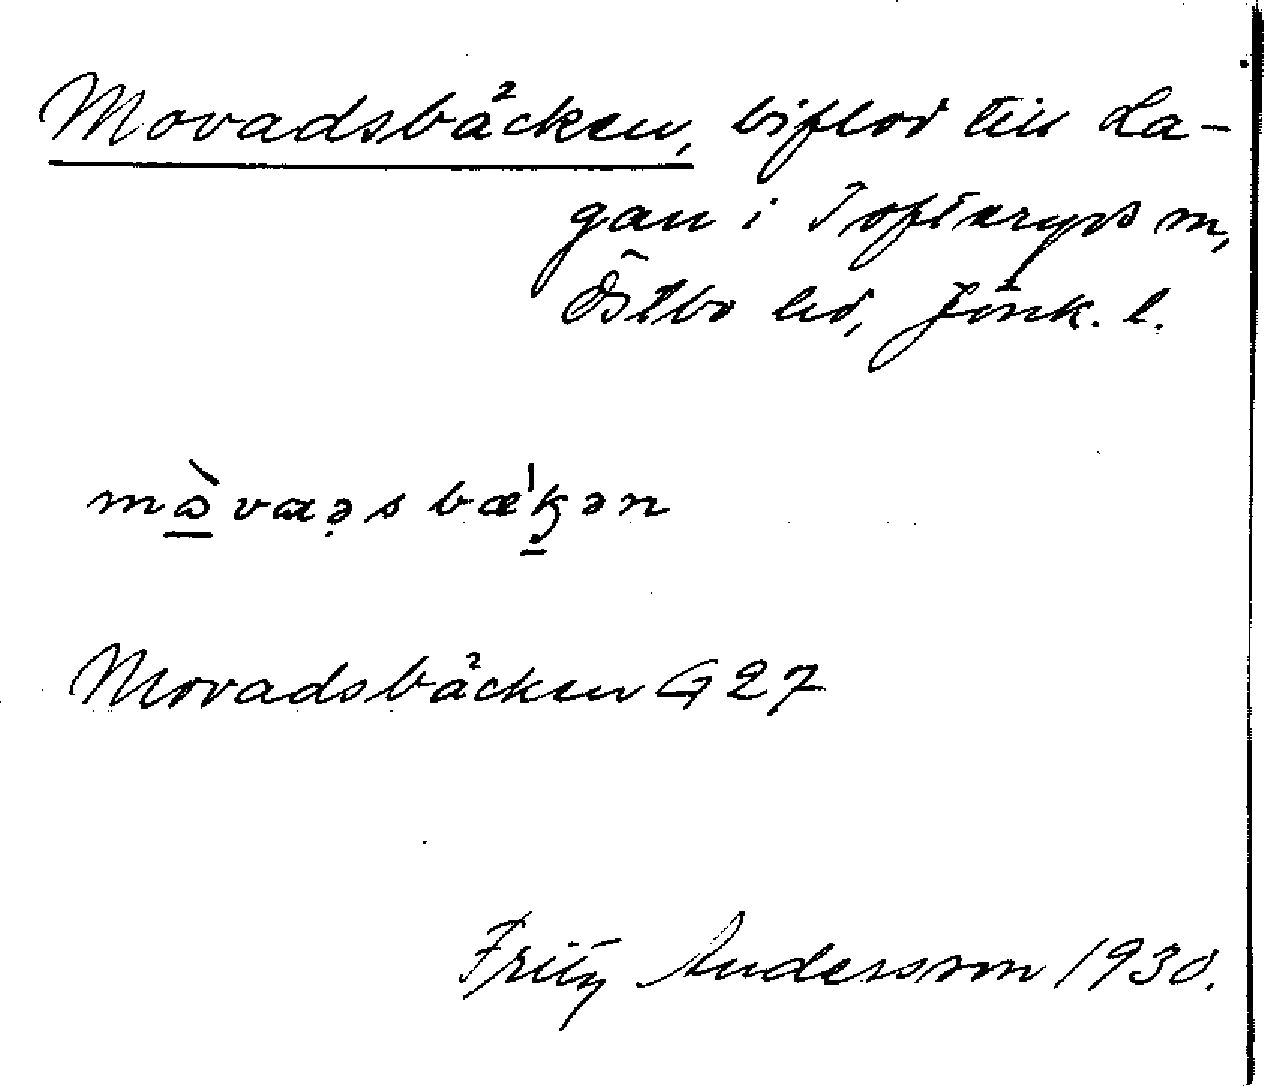 Movadsbäcken, biflod till La-
gan i Tofteryds sn,
Östbo hd, Jönk. l.
Movadsbäcken G 27
Fritz Andersson 1930.